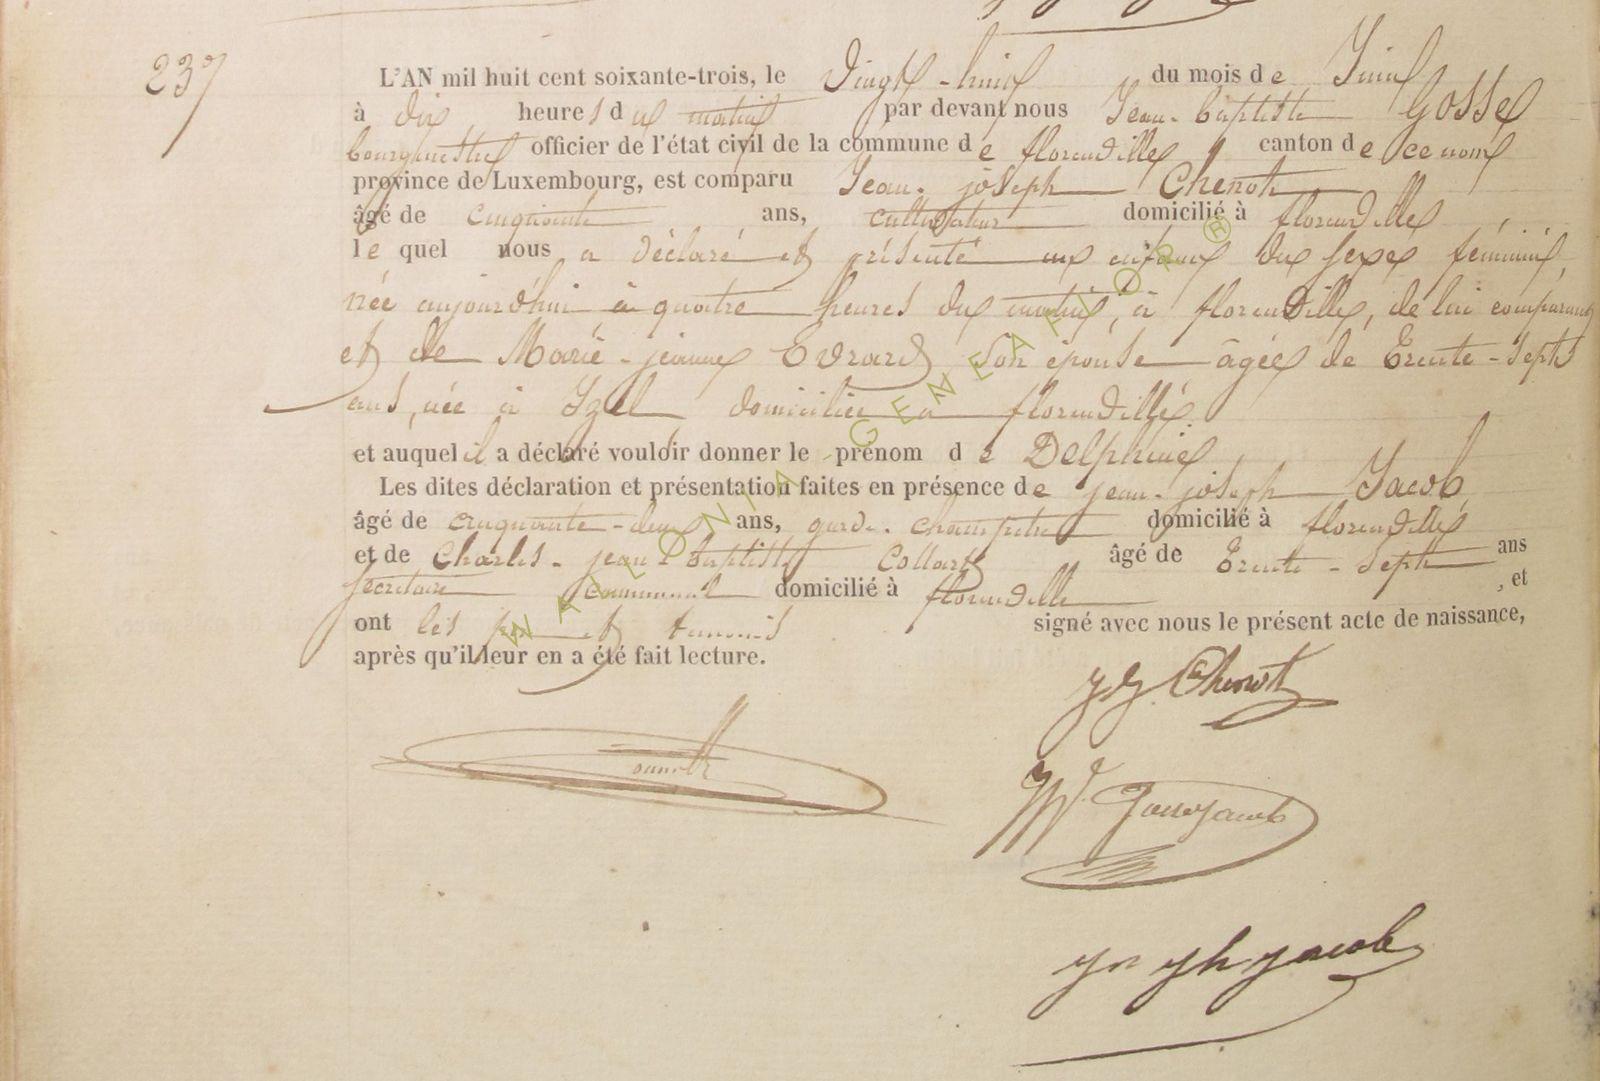 237
L'AN mil huit cent soixante-trois, le vingt-huit du mois de Juin
à dix heures du matin par devant nous Jean-baptiste Gosse
bourgmestre officier de l'état civil de la commune de florenville, canton de ce nom
province de Luxembourg, est comparu Jean-joseph Chenot
âgé de cinquante ans, cultivateur domicilié à florenville,
lequel nous a déclaré et présenté un enfant du sexe féminin,
née aujourd'hui à quatre heures du matin, à florenville, de lui comparant
et de Marie-jeanne Evrard son épouse âgée de Trente-sept
ans, née à Izel, domiciliée à florenville
et auquel il a déclaré vouloir donner le prénom de Delphine
Les dites déclaration et présentation faites en présence de jean-joseph Jacob,
âgé de cinquante-deux ans, garde-champêtre domicilié à florenville
et de Charles-jean-Baptiste Collard âgé de Trente-sept ans
secrétaire communal domicilié à florenville, et
ont les père et témoins signé avec nous le présent acte de naissance,
après qu'il leur en a été fait lecture.
JJ. Chenot
Jacob
WALLONIA-GENEALOR ®